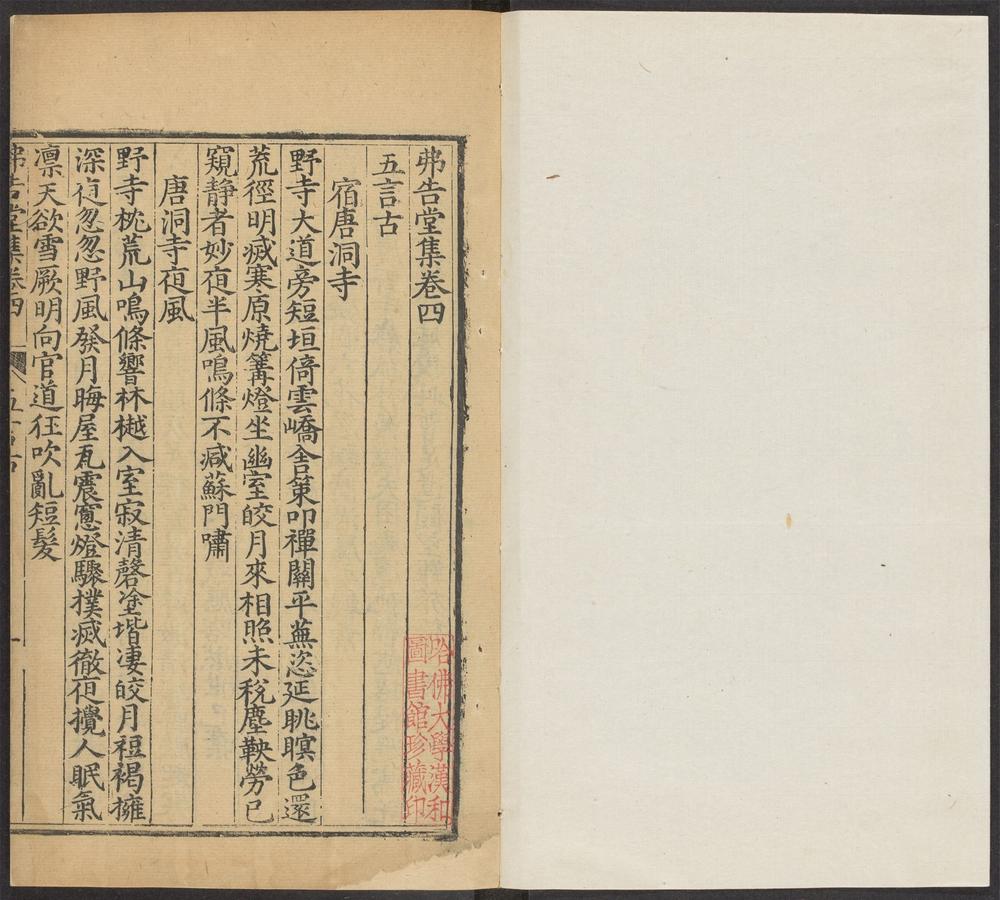 弗告堂集卷四
五言古
宿唐洞寺
野寺大道旁短垣倚雲嶠舍策叩禪關平蕪恣延眺暝色還
荒徑明滅寒原燒篝燈坐幽室皎月來相照未稅塵鞅勞已
窺靜者妙夜半風鳴條不減蘇門嘯
唐洞寺夜風
野寺枕荒山鳴條響林樾入室寂清磬塗堦凄皎月裋褐擁
深夜忽忽野風發月晦屋瓦震窻燈驟撲滅徹夜攪人眠氣
凛天欲雪厥明向官道狂吹亂短髮
弗告堂集卷四
五言古
一
哈佛大學漢和
圖書館珍藏印